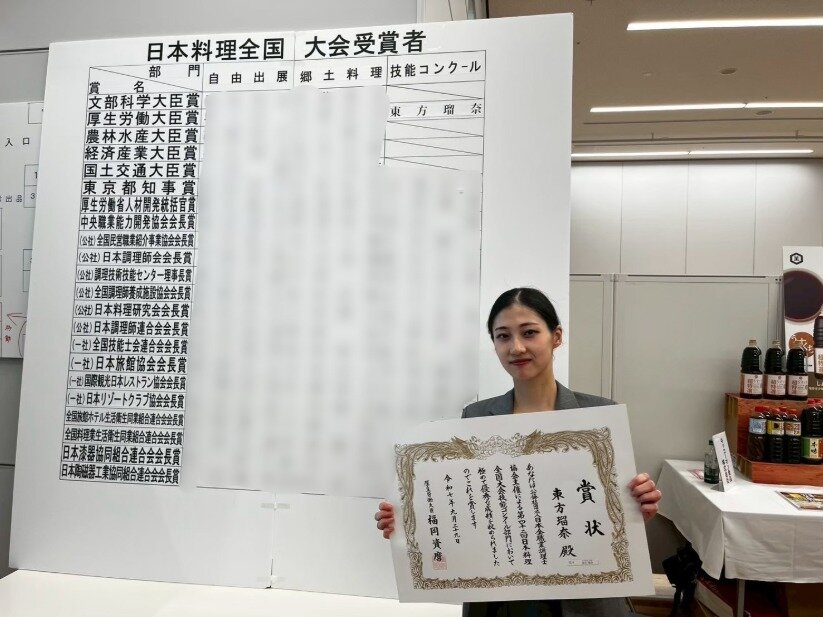 日本料理全国 大会受賞者
部門 自由出展 郷土料理 技能コンクール
賞名
文部科学大臣賞
厚生労働大臣賞 東方瑠奈
農林水産大臣賞
経済産業大臣賞
国土交通大臣賞
東京都知事賞
厚生労働省人材開発統括官賞
中央職業能力開発協会会長賞
(公社)全国民営職業紹介事業協会会長賞
(公社)日本調理師会会長賞
(公社)調理技術技能センター理事長賞
(公社)全国調理師養成施設協会会長賞
(公社)日本料理研究会会長賞
(公社)日本調理師連合会会長賞
(一社)全国技能士会連合会会長賞
(一社)日本旅館協会会長賞
(一社)国際観光日本レストラン協会会長賞
(一社)日本リゾートクラブ協会会長賞
全国旅館ホテル生活衛生同業組合連合会会長賞
全国料理業生活衛生同業組合連合会会長賞
日本漆器協同組合連合会会長賞
日本陶磁器工業協同組合連合会会長賞
入口
賞状
東方瑠奈 殿
あなたは公益社団法人日本全職業調理士
協会主催による第四十二回日本料理
全国大会技能コンクール部門において
極めて優秀な成績を収められました
のでこれを賞します
令和七年九月二十九日
厚生労働大臣 福岡資麿